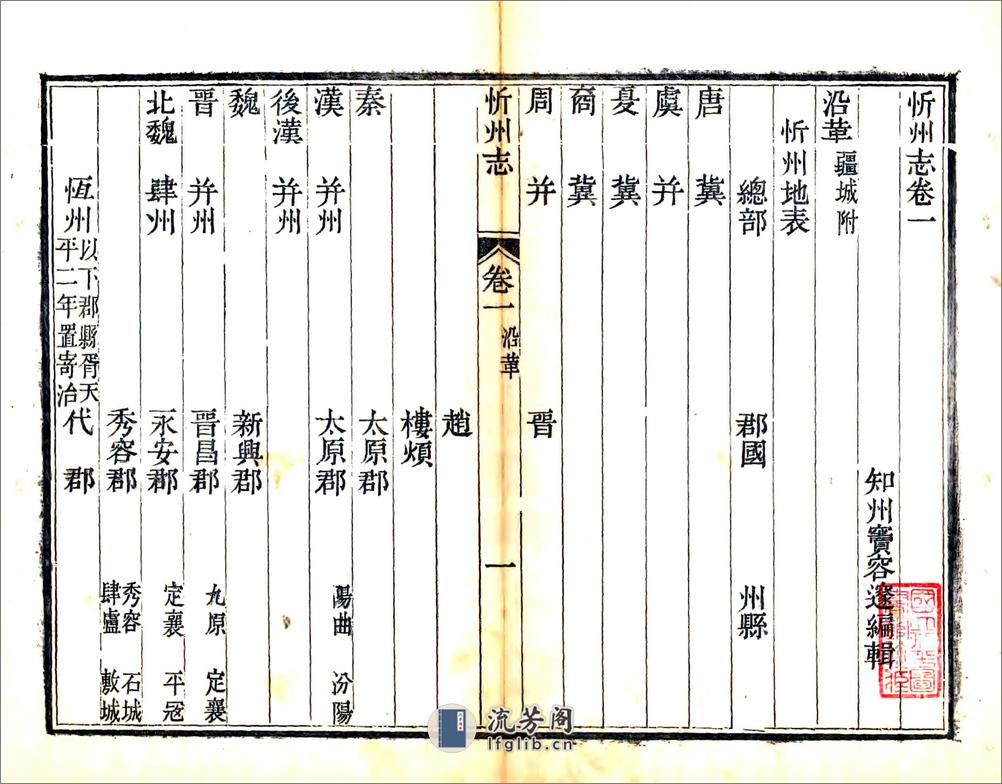 忻州志卷一
知州竇容邃編輯
沿革 疆城附
忻州地表
總部 郡國 州縣
唐 冀
虞 并
夏 冀
商 冀
周 并 晉
忻州志 卷一 沿革 一
趙
樓煩
秦 太原郡
漢 并州 太原郡 陽曲 汾陽
後漢 并州
魏 新興郡
晉 并州 晉昌郡 九原 定襄
北魏 肆州 永安郡 定襄 平寇
秀容郡 秀容 石城 肆盧 敷城
恆州 以下郡縣胥天平二年置寄治 代郡
流芳阁
lfglib.cn